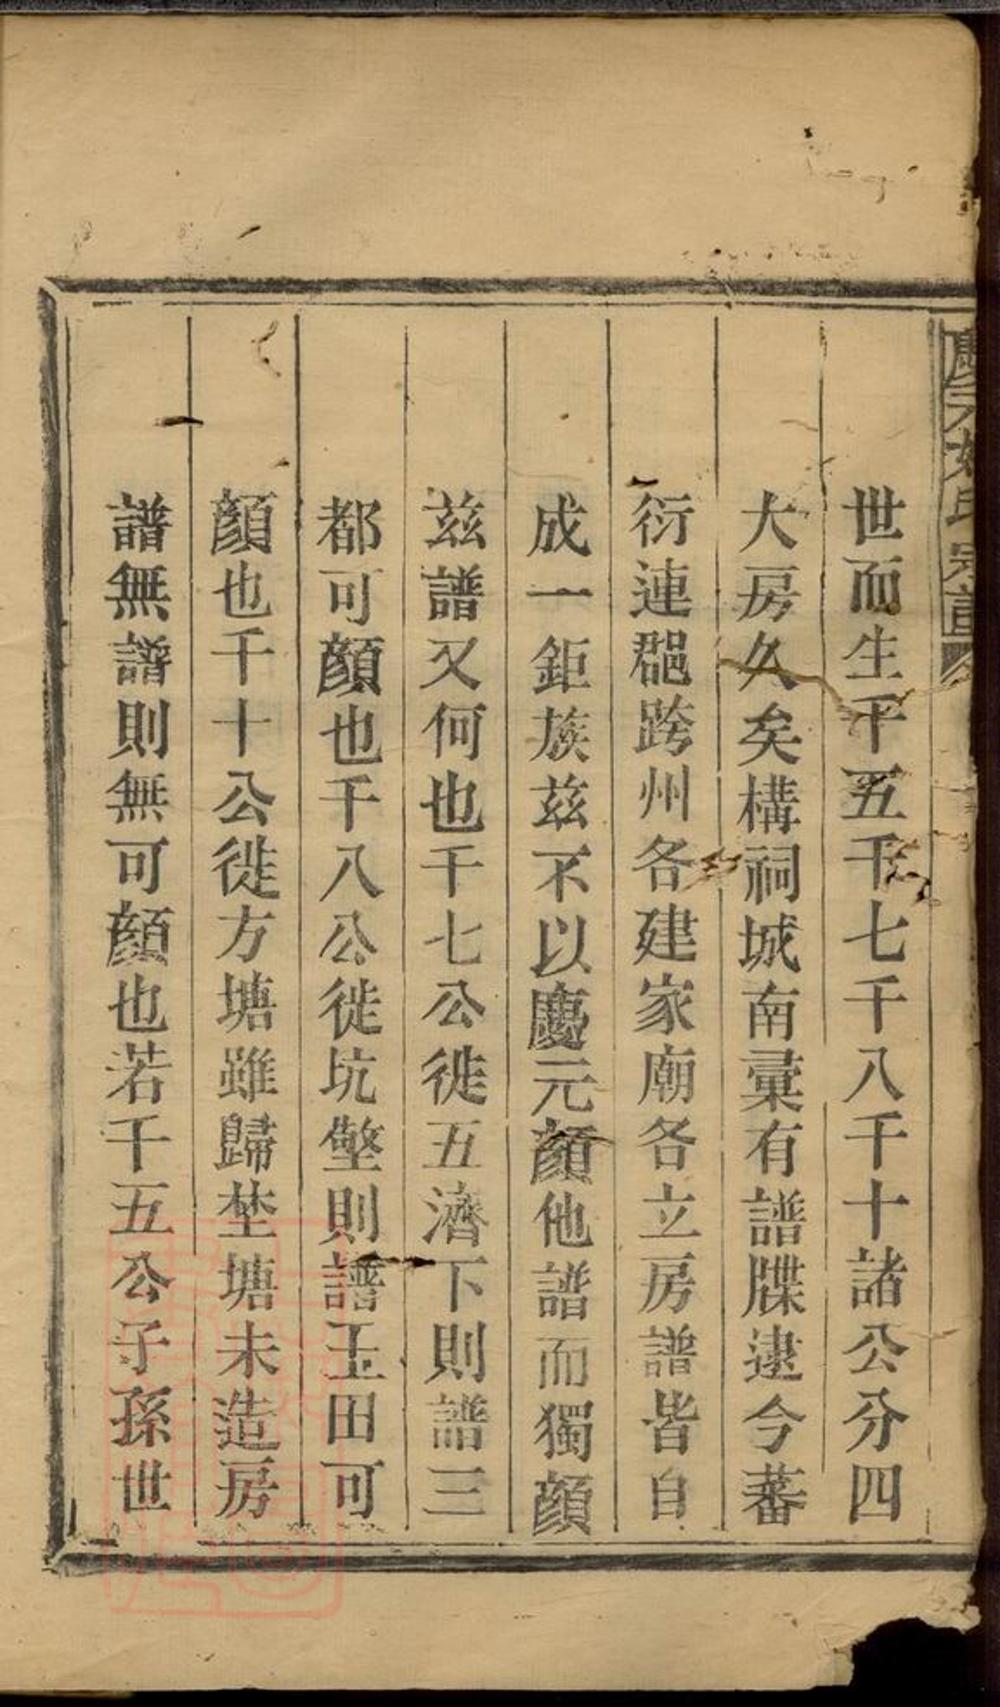 慶元姚氏宗譜
世而生千五千七千八千十諸公分四
大房久矣構祠城南彚有譜牒逮今蕃
衍連郡跨州各建家廟各立房譜皆自
成一鉅族茲不以慶元顔他譜而獨顔
茲譜又何也千七公徙五濟下則譜三
都可顔也千八公徙坑壑則譜玉田可
顔也千十公徙方塘雖歸坔塘未造房
譜無譜則無可顔也若千五公子孫世